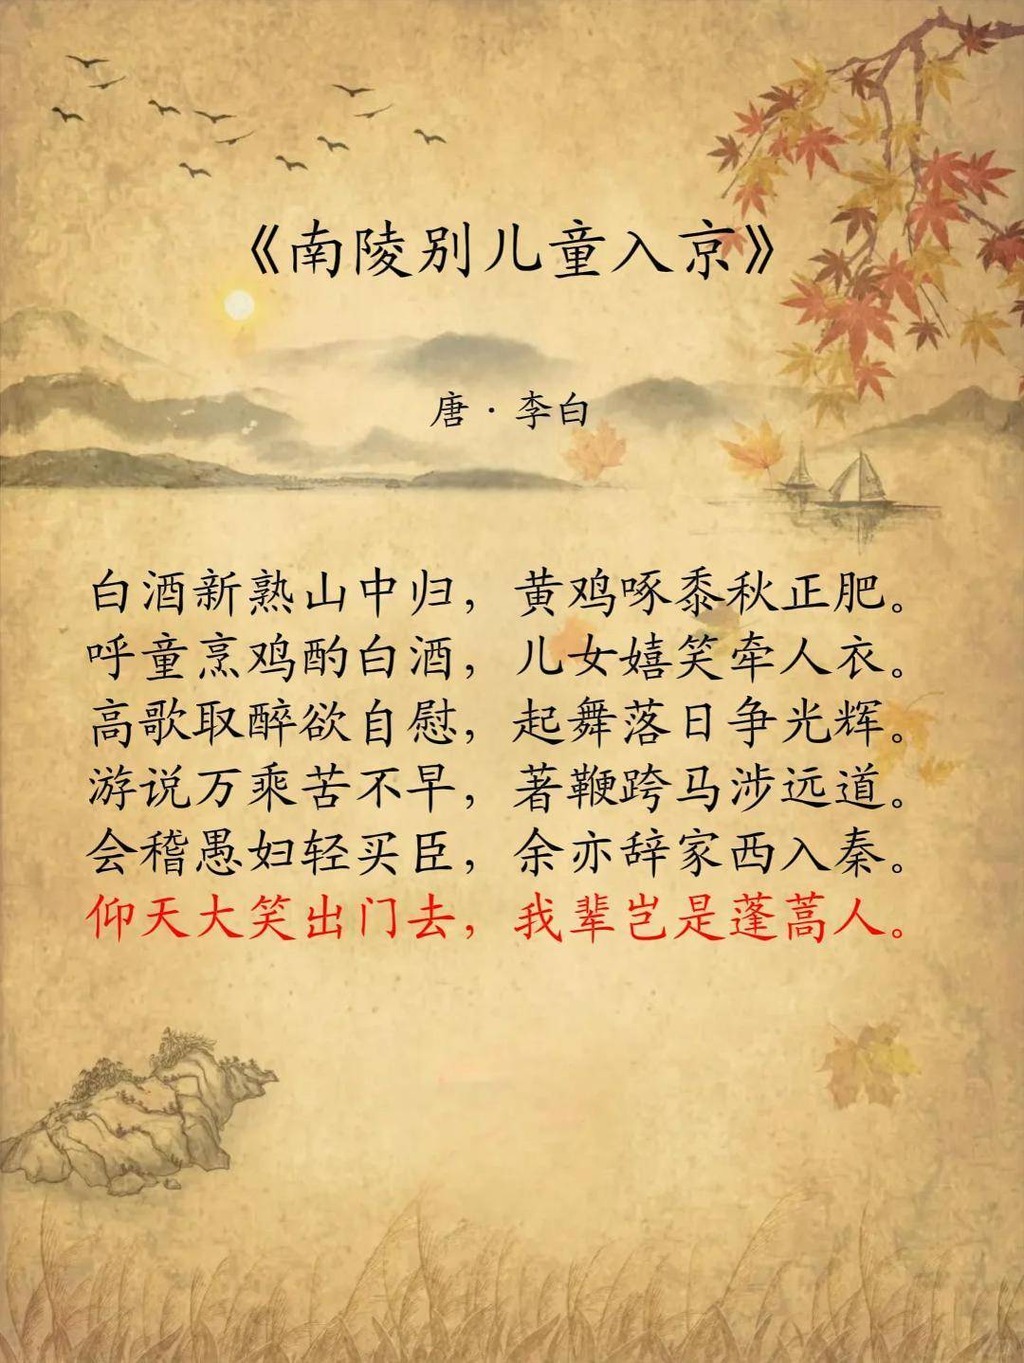 《南陵别儿童入京》
唐·李白
白酒新熟山中归，黄鸡啄黍秋正肥。
呼童烹鸡酌白酒，儿女嬉笑牵人衣。
高歌取醉欲自慰，起舞落日争光辉。
游说万乘苦不早，著鞭跨马涉远道。
会稽愚妇轻买臣，余亦辞家西入秦。
仰天大笑出门去，我辈岂是蓬蒿人。